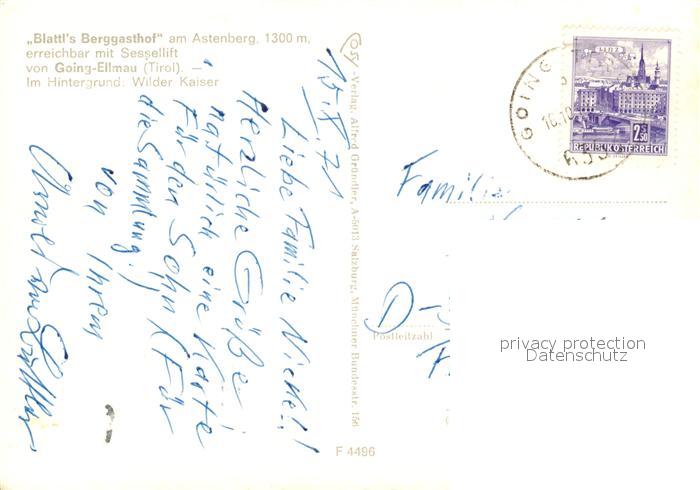 „Blattl's Berggasthof" am Astenberg, 1300 m,
erreichbar mit Sessellift
von Going-Ellmau (Tirol). —
Im Hintergrund: Wilder Kaiser
15.X.71
Liebe Familie Nickel!
Herzliche Grüße
natürlich eine Karte
für den Sohn (Für
die Sammlung)
von Ihrem
-Verlag, Alfred Gründler, A-5013 Salzburg, Münchner Bundesstr. 156
F 4496
LINZ
2.50
REPUBLIK ÖSTERREICH
GOING
Familie
D-
Postleitzahl
privacy protection
Datenschutz